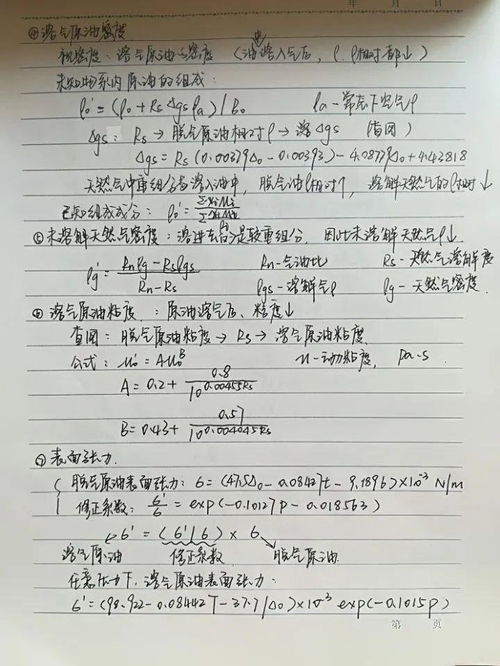 年 月 日
④溶气原油密度
视密度：溶气原油の密度 (油溶入气后，ρ、ρ相对都↓)
未知物系内原油的组成：
ρo' = (ρo + Rs Δgs ρa) / Bo ρa - 常态下空气ρ
Δgs: Rs → 脱气原油相对ρ → 溶Δgs (查图)
Δgs = Rs (0.00379Δo - 0.00393) - 4.0879Δo + 4.43818
天然气中重组分溶入油中，脱气油ρ相对↑，溶解天然气的ρ相对↓
已知组成成分：ρo' =
⑤未溶解天然气密度：溶进去的是较重组分，因此未溶解天然气ρ↓.
ρg' = (Rnρg - Rsρgs) / (Rn - Rs) Rn - 气油比 Rs - 天然气溶解度
ρgs - 溶解气ρ ρg - 天然气密度.
⑥溶气原油粘度：原油溶气后、粘度↓
查图：脱气原油粘度 → Rs → 溶气原油粘度
公式：μo' = Aμo^B μ - 动力粘度， Pa·s
A = 0.2 + 0.8 / 10^0.00455Rs
B = 0.43 + 0.57 / 10^0.004045Rs
⑦表面张力.
脱气原油表面张力：б = (47.5Δo - 0.08427t - 9.1896) × 10^-3 N/m
修正系数：б'/б = exp(-0.1012p - 0.018563)
б' = (б'/б) × б
溶气原油 修正系数 脱气原油
任意压力下，溶气原油表面张力：
б' = (98.922 - 0.08442T - 37.7/Δo) × 10^-3 exp(-0.1015p)
第 页